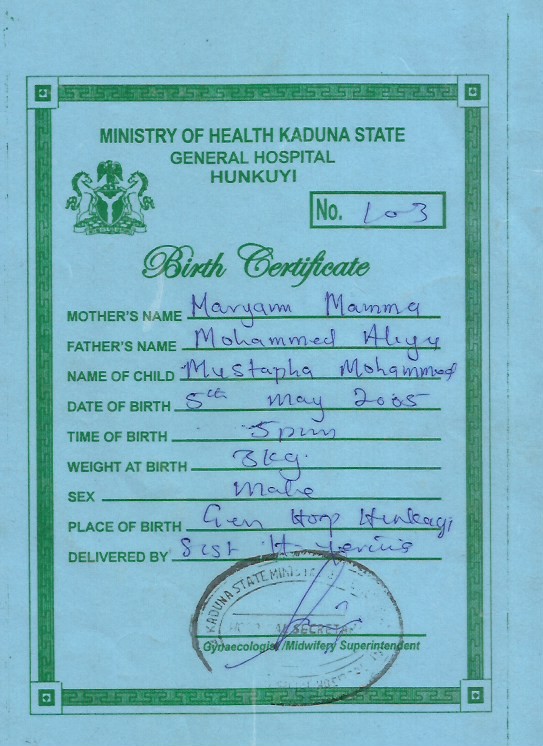 MINISTRY OF HEALTH KADUNA STATE
GENERAL HOSPITAL
HUNKUYI
No. 103
Birth Certificate
MOTHER'S NAME Maryam Mamma
FATHER'S NAME Mohammed Aliyu
NAME OF CHILD Mustapha Mohammed
DATE OF BIRTH 5th May 2005
TIME OF BIRTH 5pm
WEIGHT AT BIRTH 3kg.
SEX Male
PLACE OF BIRTH Gen Hosp
DELIVERED BY
KADUNA STATE MINIST
SECRETA
Gynaecologist/Midwifery Superintendent